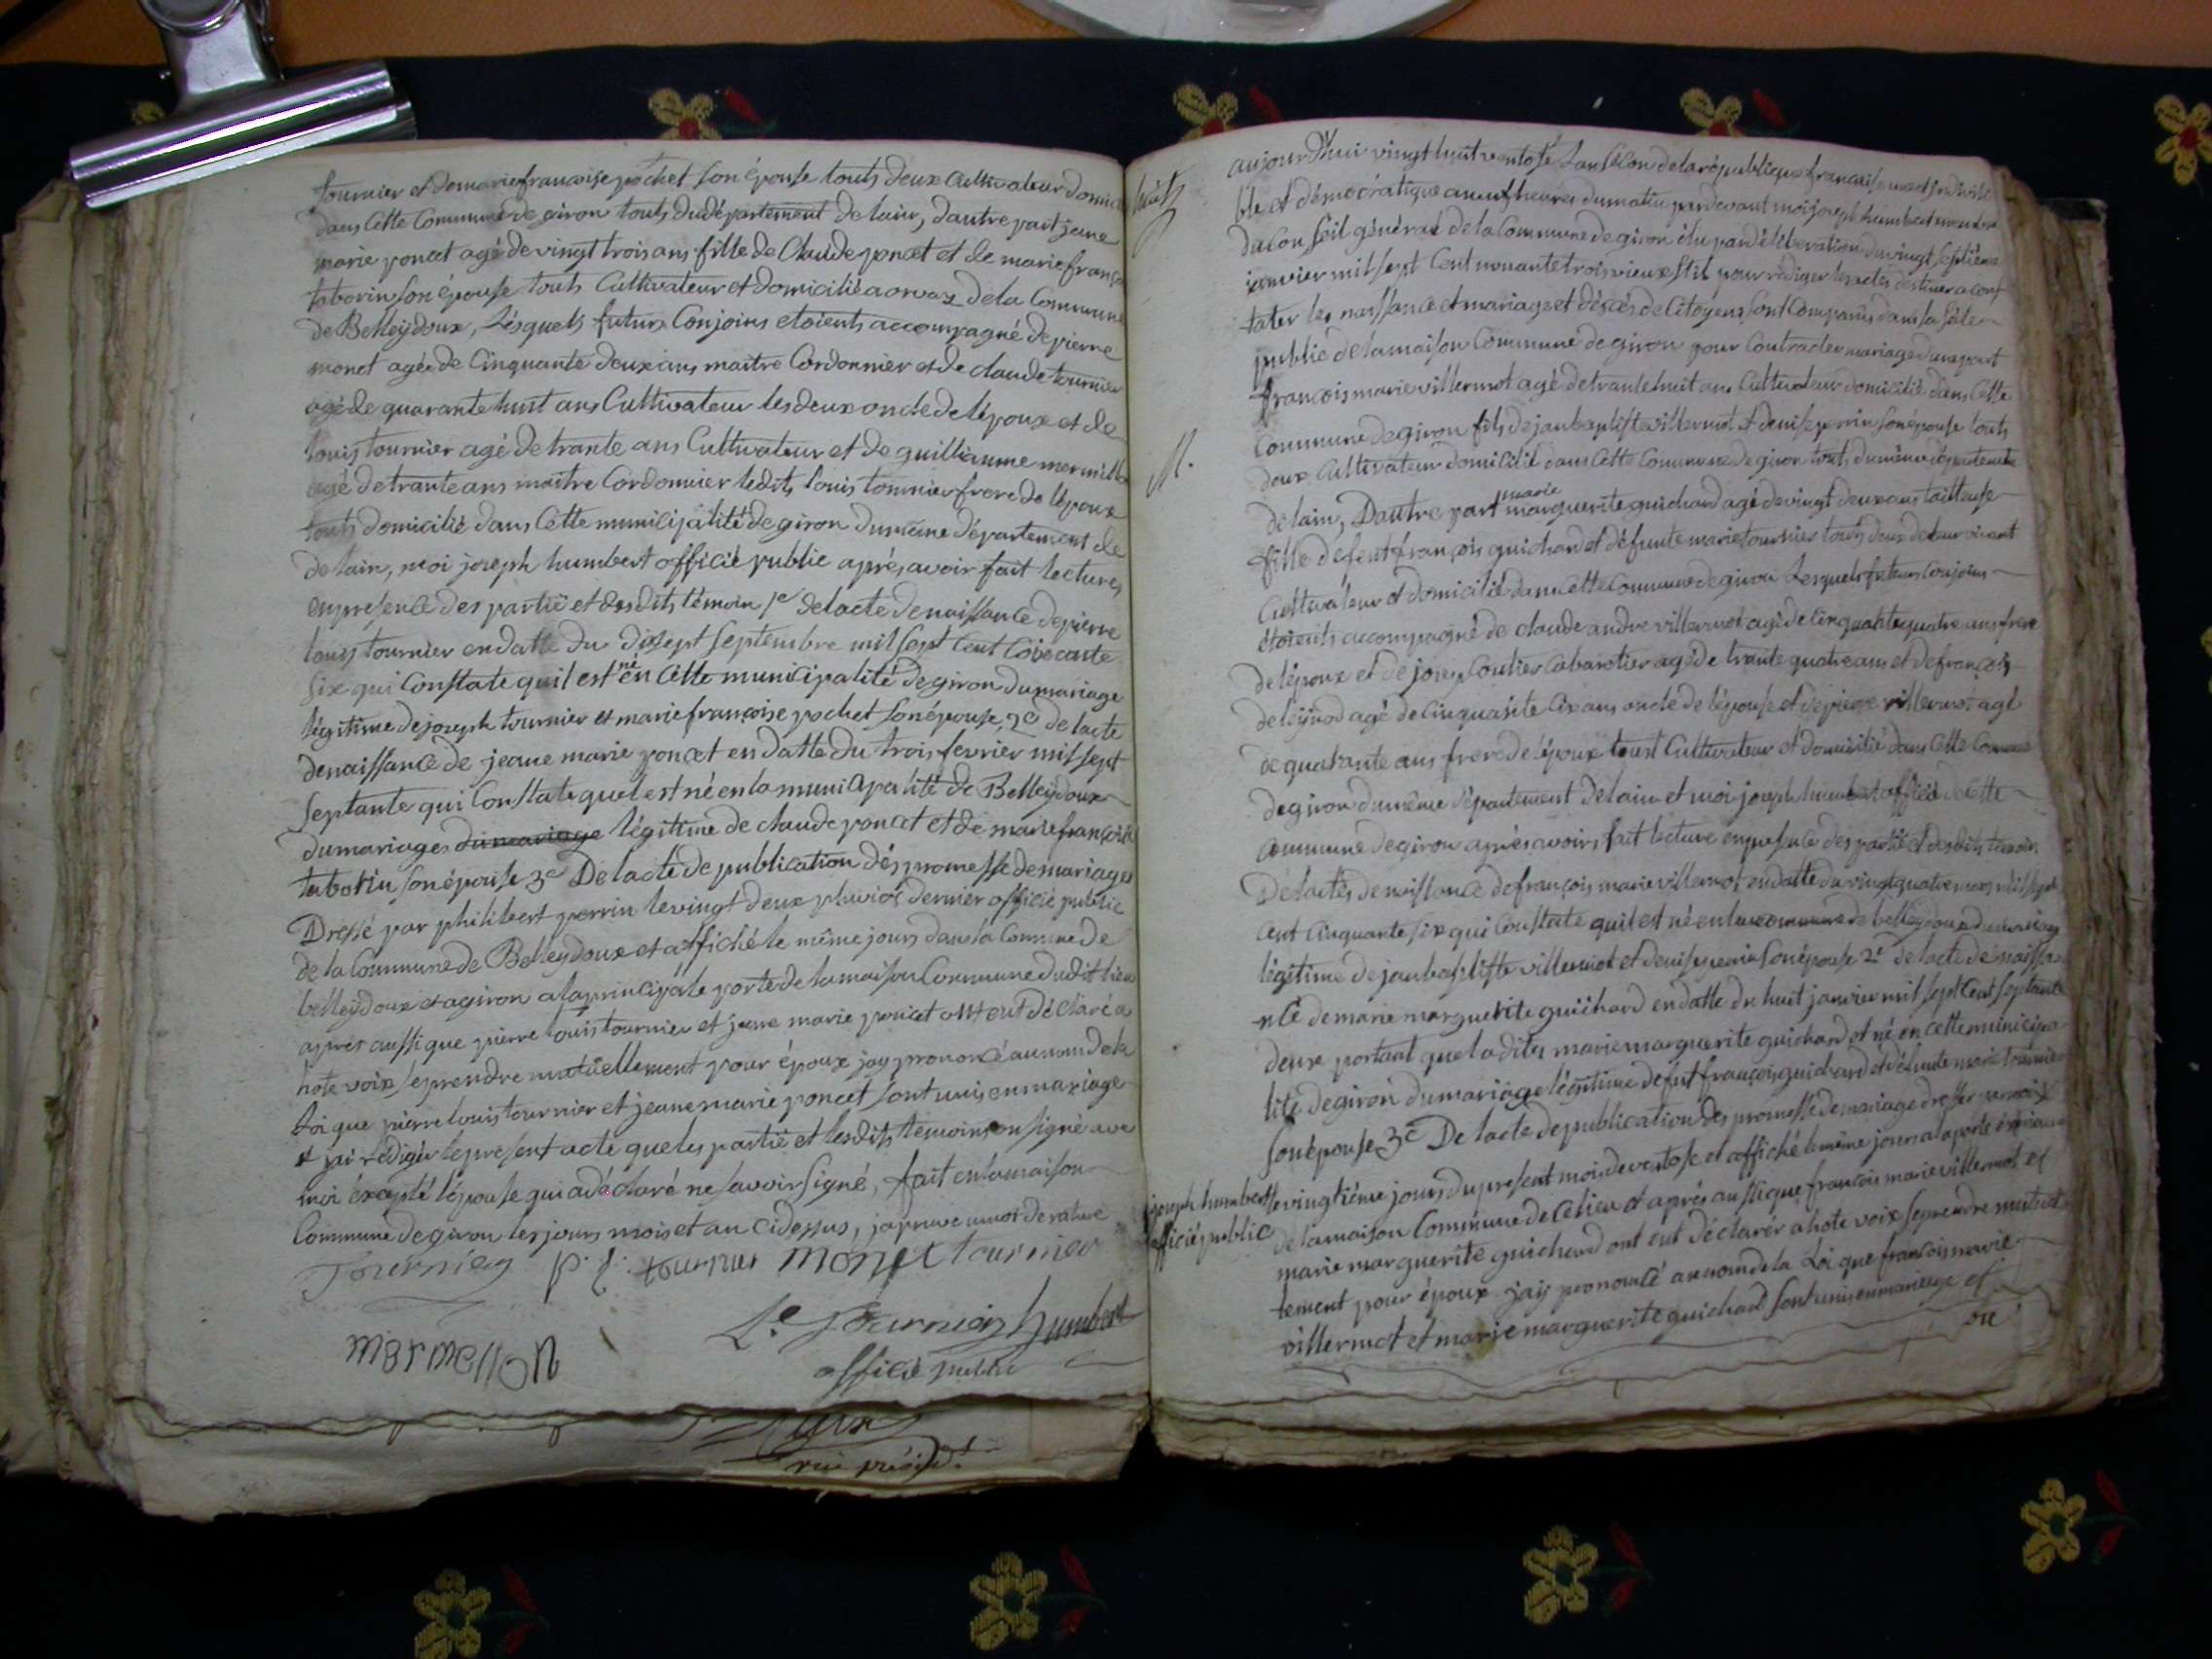 tournier et de marie francoise pochet son épouse touts deux Cultivateur domici
dans Cette Commune de giron touts du département de lain, dautre part jane
marie poncet agé de vingt trois ans fille de Claude poncet et de marie franço
taborin son épouse touts Cultivateur et domicilié a orvaz de la Commune
de Belleÿdoux, Lésquels futurs Conjoins etoients accompagné de pierre
monet agé de Cinquante deux ans maitre Cordonnier et de claude tournier
agé de quarante huit ans Cultivateur les deux oncle de lépoux et de
louis tournier agé de trante ans Cultivateur et de guilliaume mermillo
agé de trante ans maitre Cordonnier ledits louis tournier frere de lépoux
touts domicilié dans Cette municipalité de giron du même département de
de lain, moi joseph humbert officié public aprés avoir fait lectures
en presence des partië et des dits témoin 1e de lacte de naissance de pierre
louis tournier en datte du disept septembre mil sept Cent
six qui Constate quil est né en Cette municipalité de giron du mariage
légitime de joseph tournier et marie françoise pochet son épouse, 2e de lacte
de naissance de jeane marie poncet en datte du trois fevrier mil sept
septante qui Constate quel est né en la municipalité de Belleÿdoux
du mariages du mariage légitime de claude poncet et de marie françoise
taborin son épouse 3e De lacte de publication dés promesse de mariages
Dressé par philibert perrin le vingt deux pluvios dernier officié public
de la Commune de Belleydoux et affiché le même jours dans la Comune de
belleydoux et a giron a la principale porte de la maison Commune dudit lieu
aprés aussi que pierre louis tournier et jeane marie poncet ont eut déclaré a
hote voix se prendre mutüellement pour époux jay prononcé au nom de la
Loi que pierre louis tournier et jeane marie poncet sont unis en mariage
et jai rédiger le present acte que les partié et lesdits témoins on signé avec
moi éxcepté lépouse qui a déclaré ne savoir signé, fait en la maison
Commune de giron les jours mois et an Cidessus,
Tournier p. l. tournier monet tournier
L.e Tournier humbert
mermellon
officié public
huits
aujour Dhui vingt huit ventose Lan Secon de la république francaise une et indivisi
ble et démocratique a neuf heures du matin pardevant moi joseph humbert membre
du Conseil général de la Commune de giron élu par délibération du vingt septiéme
janvier mil sept Cent nonante trois vieux Stil pour rédiger les actes destiner a cons
tater les naissance et mariage et décés de Citoÿens sont Comparûs dans la sale
public de la maison Commune de giron pour Contracter mariage dune part
françois marie villermot agé de trante huit ans Cultivateur domicilié dans Cette
Commune de giron fils de jan baptiste villermot et denise perrin son épouse touts
deux Cultivateur domicilié dans Cette Commune de giron touts du même département
M.
de lain, Dautre part marie marguerite guichard agé de vingt deux ans tailleuse
fille de feut françois guichard et défunte marie tournier touts deux de leur vivant
Cultivateur et domicilié dans Cette Commune de giron Lesquels futurs Conjoins
étoients accompagné de claude andre villermot agé de Cinquante quatre ans frere
de lépoux et de josep Cabaretier agé de trante quatre ans et de françois
agé de Cinquante Six ans oncle de lépouse et de pierre villermot agé
de quarante ans frere de lépoux touts Cultivateur et domicilié dans Cette Commune
de giron du même département de lain et moi joseph humbert officié de Cette
Commune de giron aprés avoirs fait lecture en presence des partié et desdits temoin
De lactes de naissance de françois marie villermot en datte du vingt quatre mars mil sept
Cent Cinquante six qui Constate quil est né en la commune de belleydoux du mariage
légitime de jan baptiste villermot et denise perrin son épouse 2e de lacte de naissa
nce de marie marguerite guichard en datte du huit janvier mil sept Cent septante
deux portant que ladites marie marguerite guichard est né en cette municipa
lité de giron du mariage légitime de feut françois guichard et défunte marie tournier
son épouse 3e De lacte de publication des promesse de mariage dresser par moi
joseph humbert
officié public
le vingtiéme jours du present mois de ventose et affiché le même jours a la porte
de la maison Commune de Ce lieu et aprés aussi que françois marie villermot et
marie marguerite guichard ont eut déclarér a hote voix se prendre mutuel
lement pour époux jaÿ prononcé au nom de la Loi que francois marie
villermot et marie marguerite guichard sont unis en mariage et